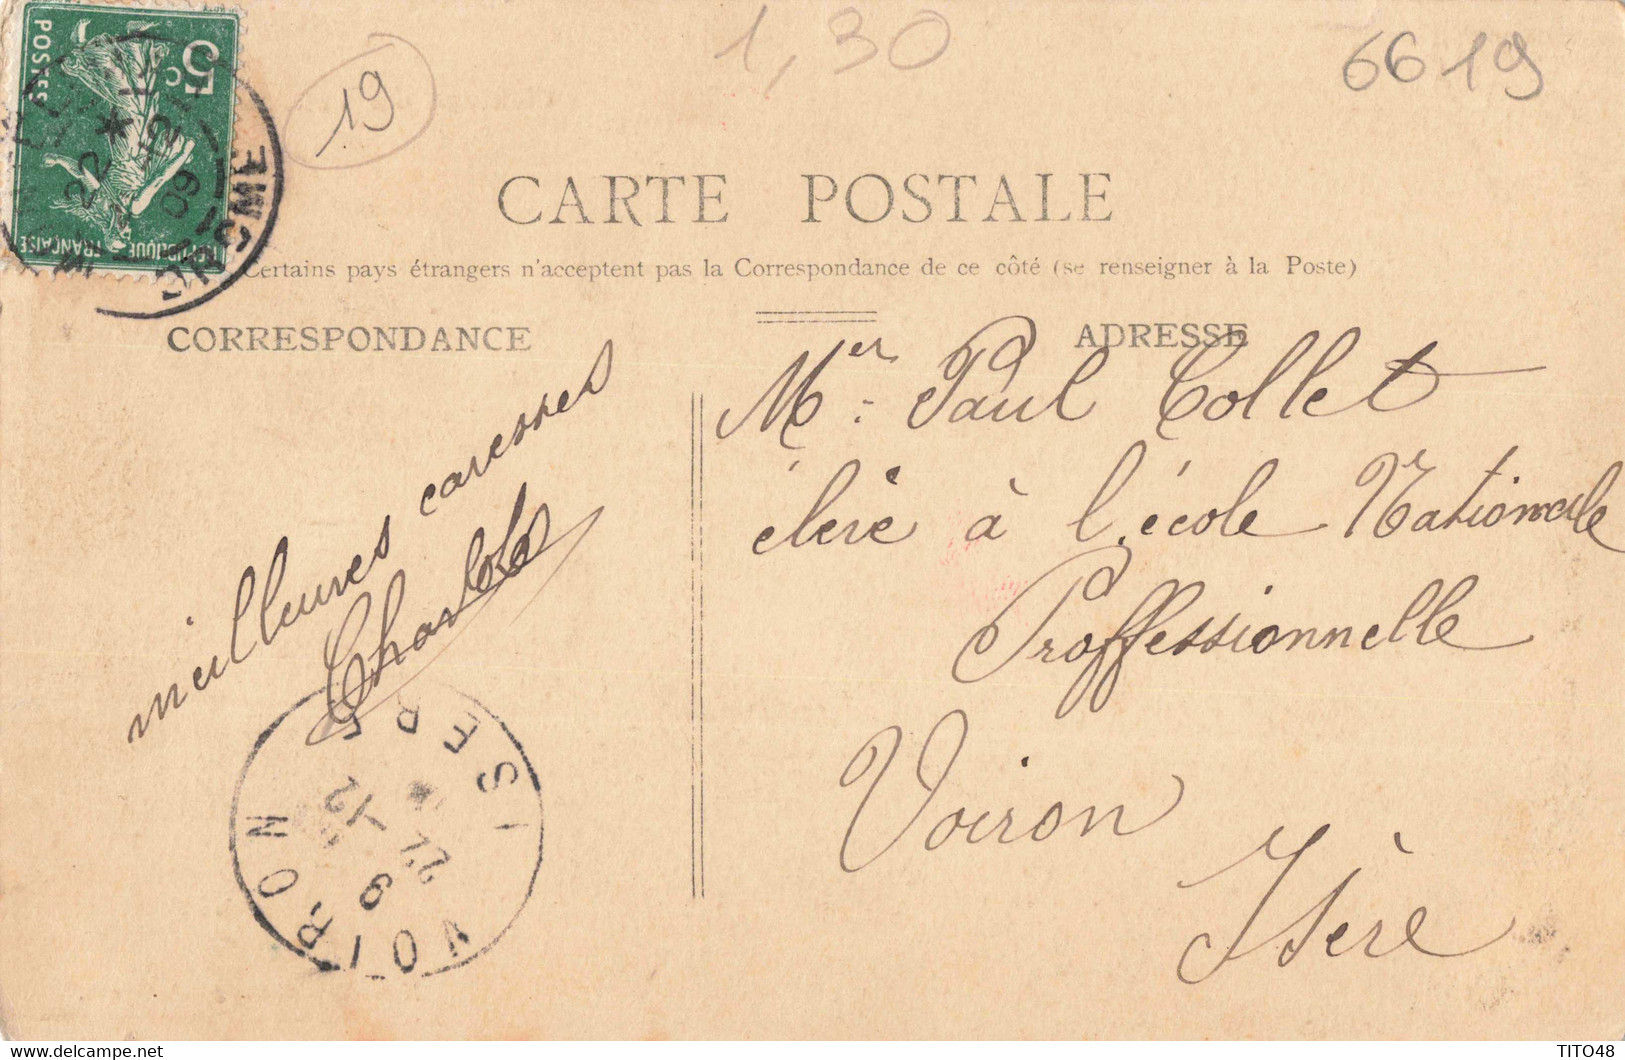 1,30
6619
19
5 c
POSTES
REPUBLIQUE FRANÇAISE
22 * 12
09
CARTE POSTALE
Certains pays étrangers n'acceptent pas la Correspondance de ce côté (se renseigner à la Poste)
CORRESPONDANCE
ADRESSE
meilleures caresses
Mer: Paul Collet
élève à l'école Nationale
Proffessionnelle
Voiron
Isère
VOIRON ISERE
22 12
9
TITO48